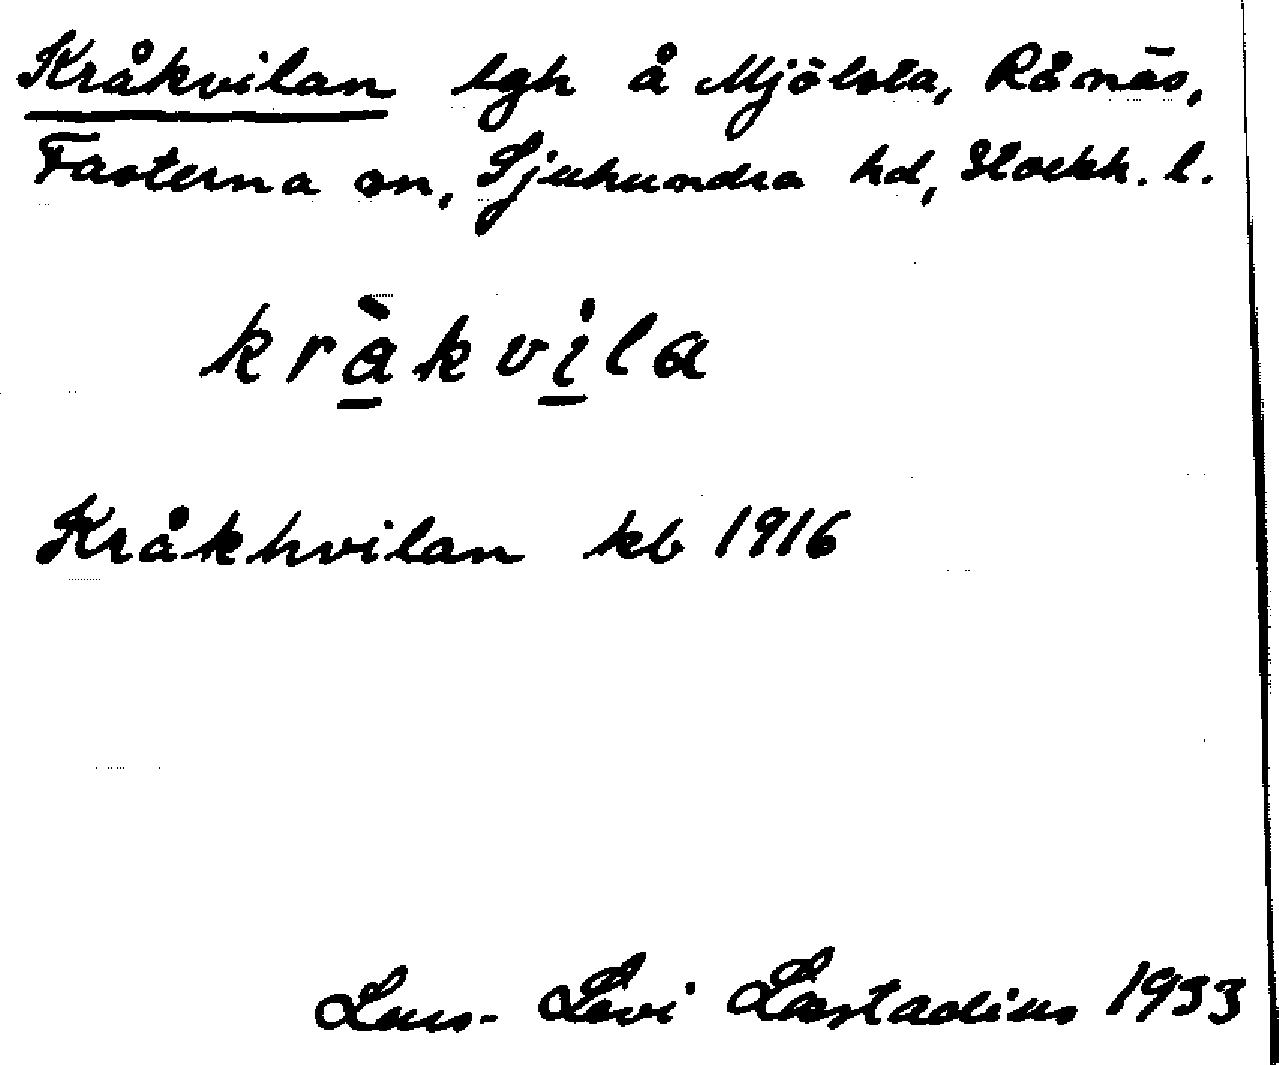 Kråkvilan lgh å Mjölsta, Rånäs,
Fasterna sn, Sjuhundra hd, Stockh. l.
kràkvila
Kråkhvilan kb 1916
Lars-Levi Læstadius 1933